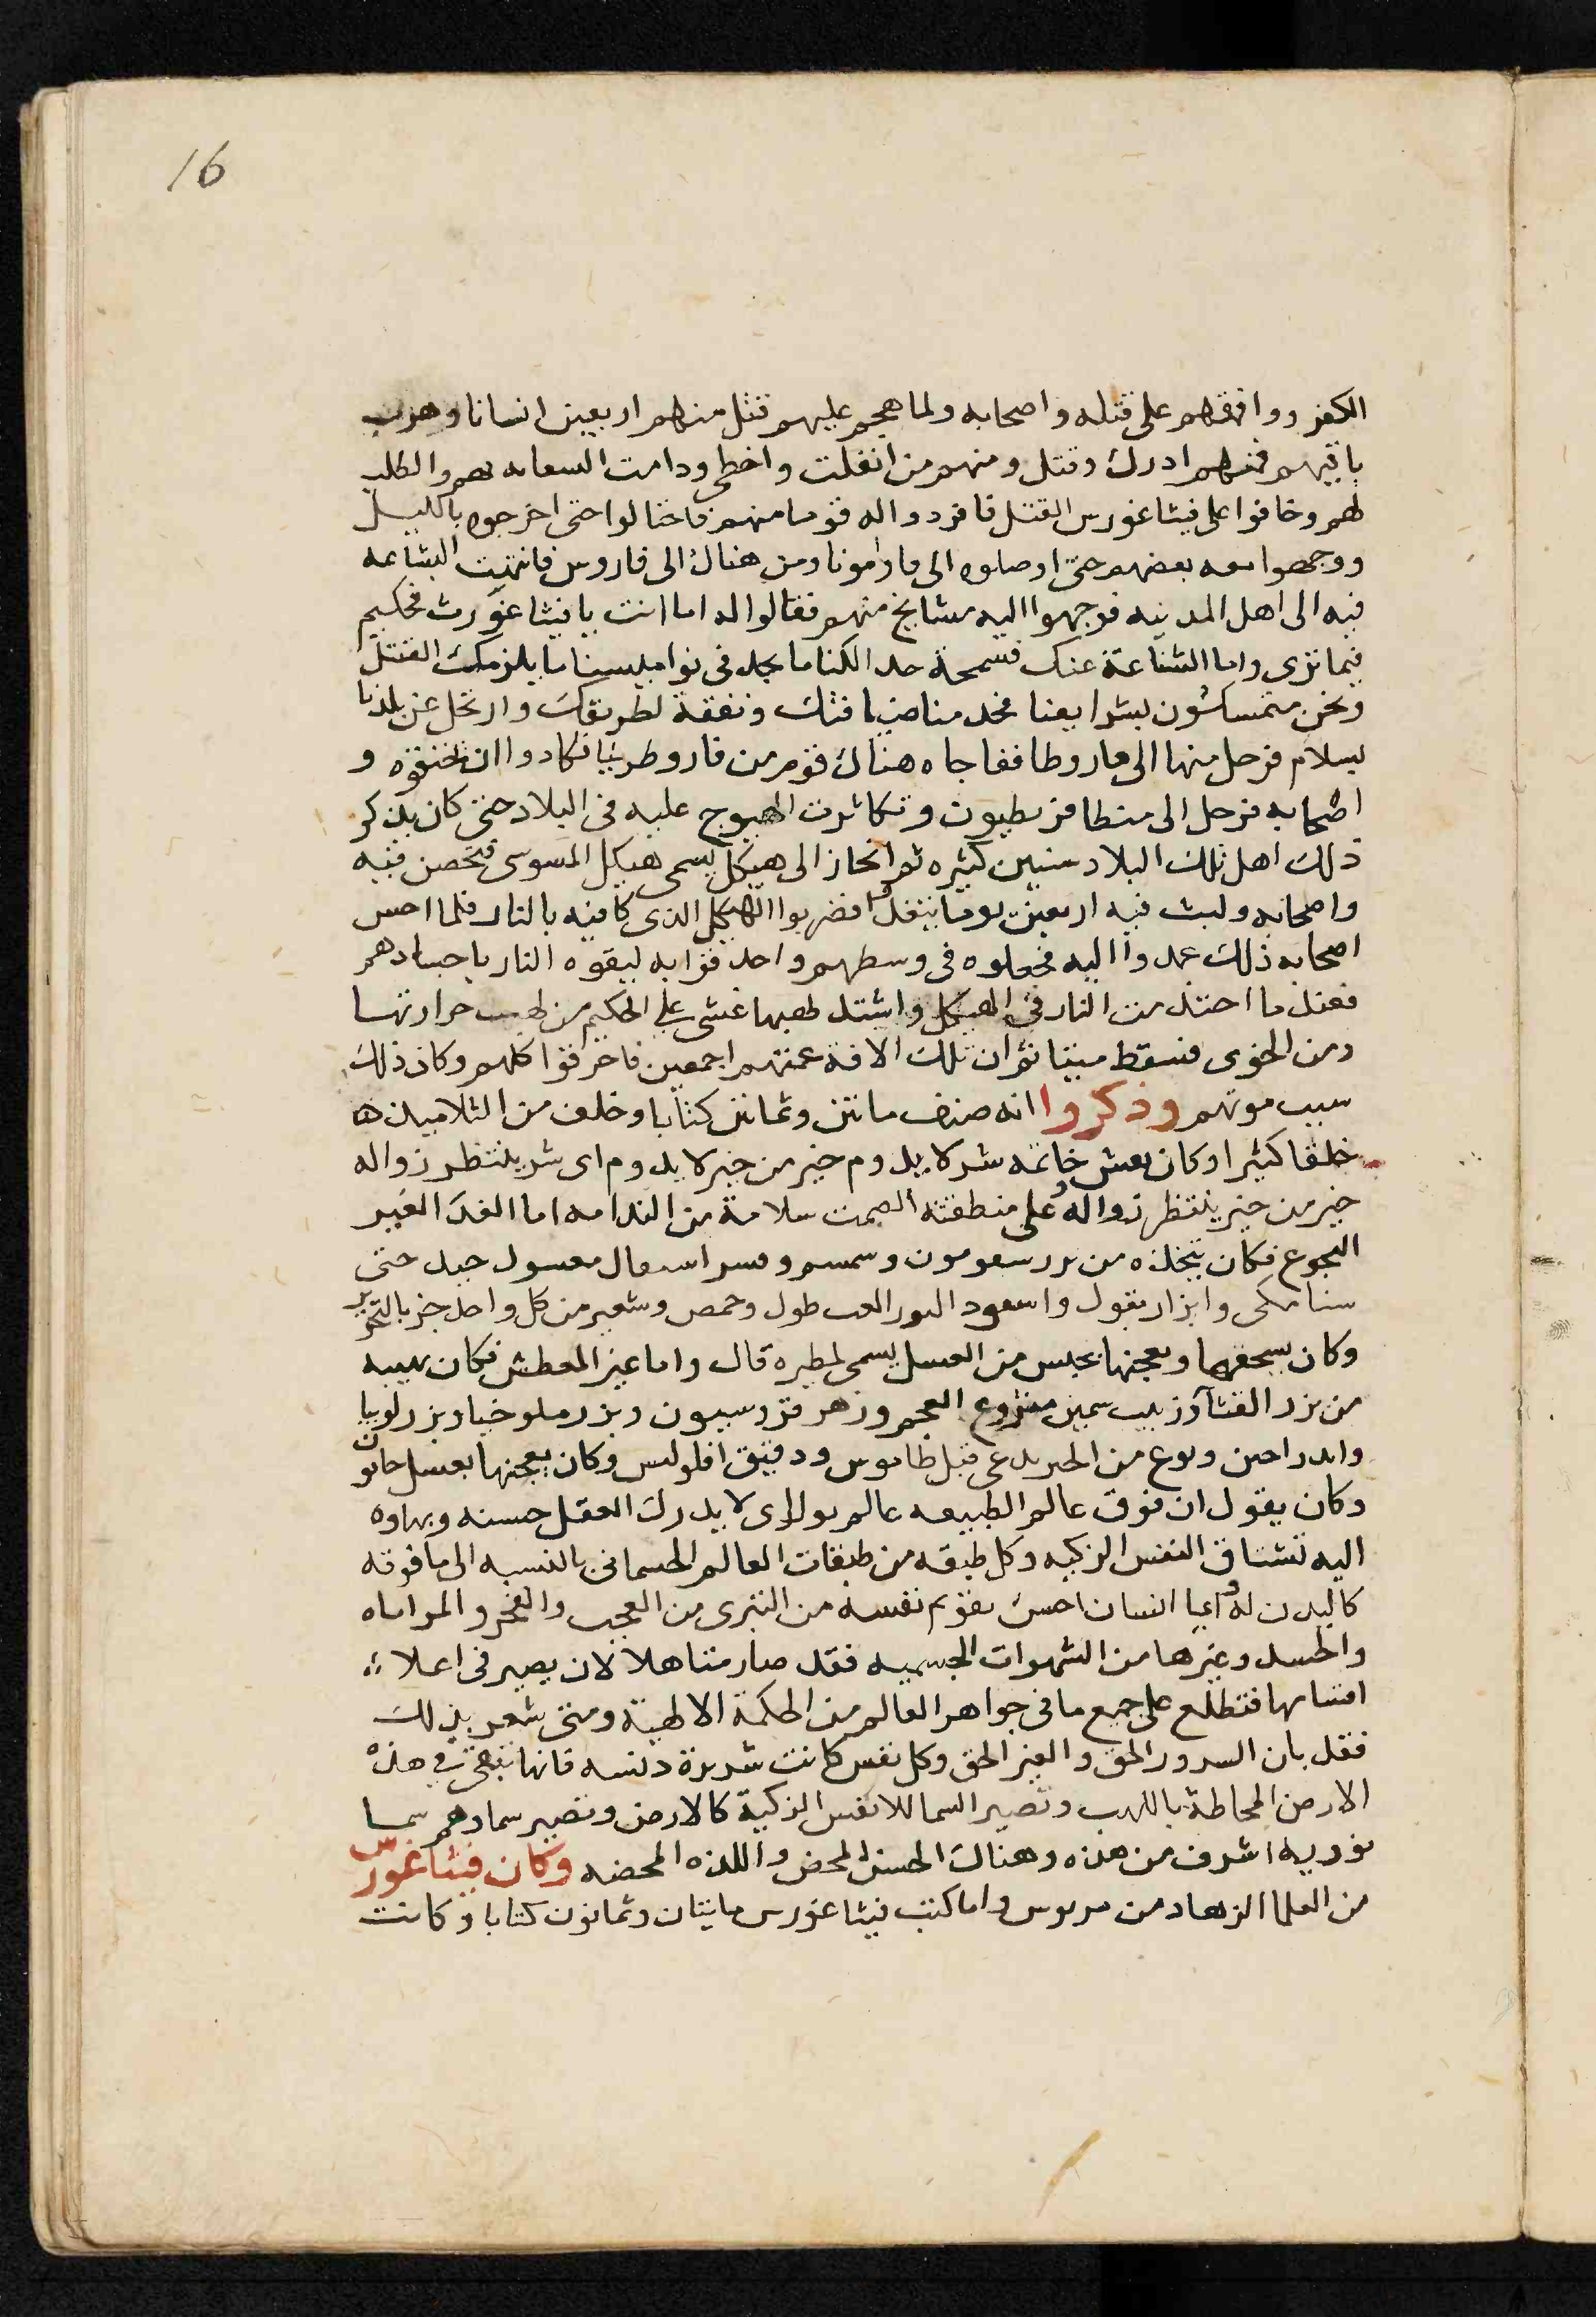 16
الكفر ووافقهم على قتله واصحابه ولما هجم عليهم قتل منهم اربعين انسانا وهرب
باقيهم فمنهم ادرك وقتل ومنهم من انفلت واخطى ودامت السعايه بهم والطلب
لهم وخافوا على فيثاغورس القتل فافردوا له قوما منهم فاحتالوا حتى اخرجوه بالليل
ووجهوا معه بعضهم حتى اوصلوه الى فاراموانا ومن هناك الى قاروس فانتهت البشاعه
فيه الى اهل المدينه فوجهوا اليه مشايخ منهم فقالوا له اما انت يا فيثاغورث فحكيم
فيما نرى واما الشناعة عنك فسمجة جدا لكنا ما نجد فى نواميسنا ما يلزمك القتل
ونحن متمسكون بشرايعنا فخد منا ضيافتك ونفقة لطريقك وارتحل عن بلدنا
بسلام فرحل منها الى فاروطا ففاجاه هناك قوم من قاروطرنيا فكادوا ان يخنقوه و
اصحابه فرحل الى منطافرنطيون وتكاثرت الهيوج عليه فى البلاد حتى كان يذكر
ذلك اهل تلك البلاد سنين كثيره ثم انحاز الى هيكل يسمى هيكل الموسى فتحصن فيه
واصحابه ولبث فيه اربعين يوما فضربوا الهيكل الذى كا فيه بالنار فلما احس
اصحابه ذلك عمدوا اليه فجعلوه فى وسطهم واحدقوا به ليقوه النار باجسادهم
فعند ما احتدمت النار فى الهيكل واشتد لهبها غشى على الحكيم من لهيب حرارتها
ومن الخوى فسقط ميتا ثم ان تلك الافة عمتهم اجمعين فاحترقوا كلهم وكان ذلك
سبب موتهم وذكروا انه صنف ماتتين وثمانين كتابا وخلف من التلاميذ
خلقا كثيرا وكان نقش خاتمه شر لا يدوم خير من خير لا يدوم اى شر ينتظر زواله
خير من خير ينتظر زواله وعلى منطقته الصمت سلامة من الندامه اما الغذ الغير
المجوع فكان يتخذه من بزر وسمسم وقشر اسقال مغسول جيد حتى
وحمص وشعير من كل واحد جز بالتحرير
وكان يسحقها ويعجنها بجنس من العسل يسمى لمطيره قال واما غير المعطش فكان يهييه
من بزر القثا وزبيب سمين منزوع العجم وزهر قزوسيون وبزر ملوخيا وبزر لوبيا
واندراحين ونوع من الخبز يدعى قيل طاموس ودقيق افلوليس وكان يعجنها بعسل حانون
وكان يقول ان فوق عالم الطبيعه عالم نورانى لا يدرك العقل حسنه وبهاوه
اليه تشتاق النفس الزكيه وكل طبقه من طبقات العالم الجسمانى بالنسبه الى ما فوقه
كالبدن له وايما انسان احسن تقويم نفسه من التبرى من العجب والفخر والمراياه
والحسد وغيرها من الشهوات الجسميه فقد صار متاهلا لان يصير فى اعلاء
اقسامها فتطلع على جميع ما فى جواهر العالم من الحكمة الالهية ومتى شعر بذلك
فقد بان السرور الحق والعز الحق وكل نفس كانت شريرة دنسه فانها تبقى في هذه
الارض المحاطة باللهب وتصير السما للانفس الزكية كالارض وتصير سماوهم سما
نوريه اشرف من هذه وهناك الحسن المحض واللذه المحضه وكان فيثاغورس
من العلما الزهاد من واما كتب فيثاغورس مايتان وثمانون كتابا وكانت